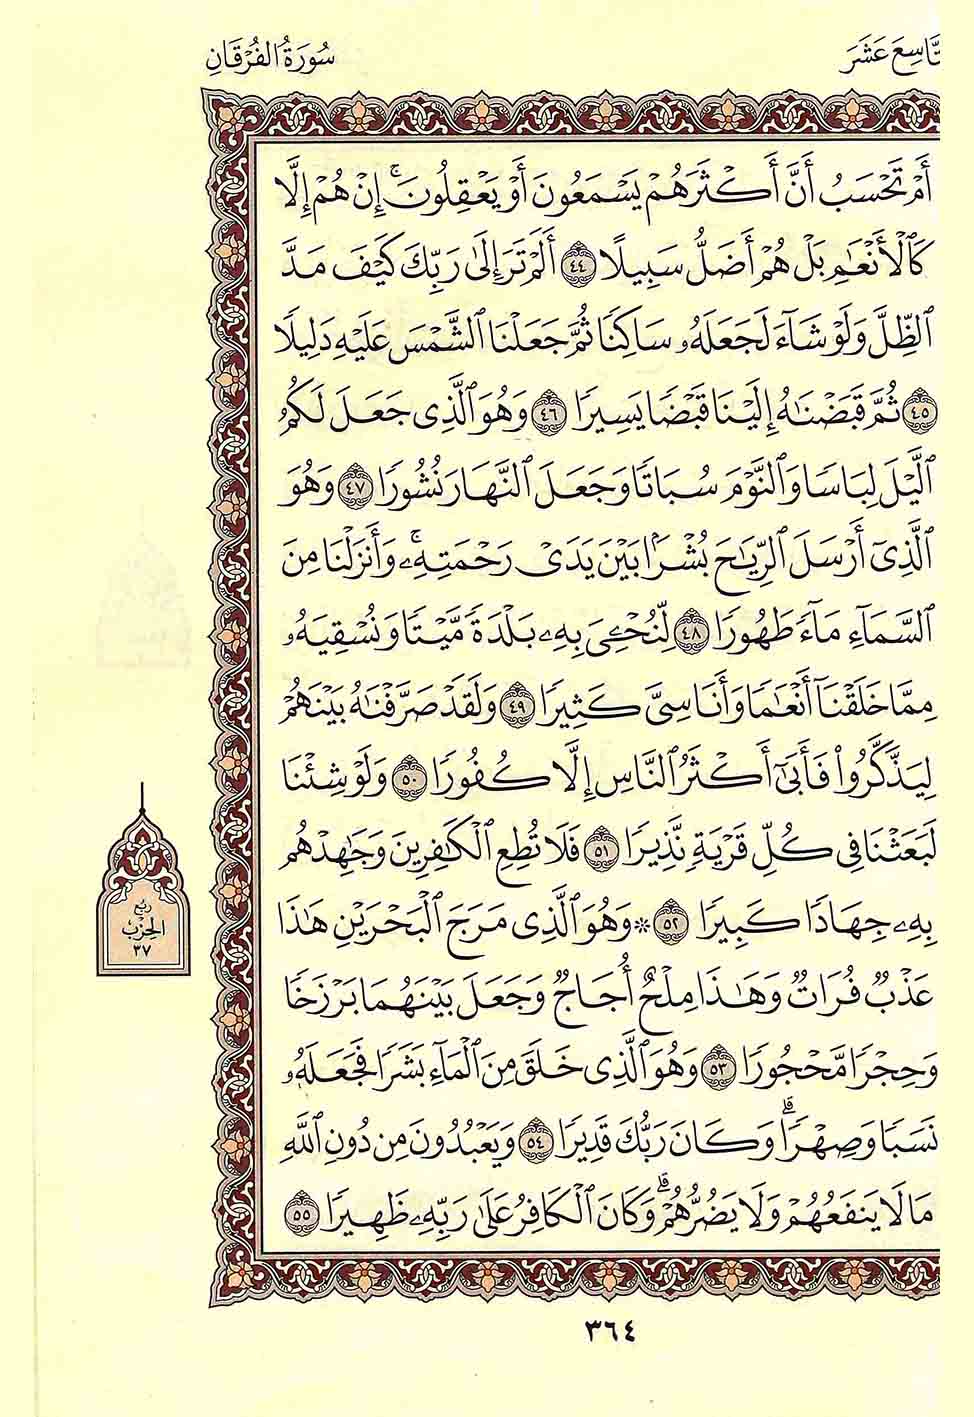 تَّاسِعَ عَشَرَ
سُورَةُ الفُرْقَانِ
أَمْ تَحْسَبُ أَنَّ أَكْثَرَهُمْ يَسْمَعُونَ أَوْ يَعْقِلُونَۚ إِنْ هُمْ إِلَّا
كَٱلْأَنْعَٰمِ بَلْ هُمْ أَضَلُّ سَبِيلًا ٤٤ أَلَمْ تَرَ إِلَىٰ رَبِّكَ كَيْفَ مَدَّ
ٱلظِّلَّ وَلَوْ شَآءَ لَجَعَلَهُۥ سَاكِنًا ثُمَّ جَعَلْنَا ٱلشَّمْسَ عَلَيْهِ دَلِيلًا
٤٥ ثُمَّ قَبَضْنَٰهُ إِلَيْنَا قَبْضًا يَسِيرًا ٤٦ وَهُوَ ٱلَّذِى جَعَلَ لَكُمُ
ٱلَّيْلَ لِبَاسًا وَٱلنَّوْمَ سُبَاتًا وَجَعَلَ ٱلنَّهَارَ نُشُورًا ٤٧ وَهُوَ
ٱلَّذِىٓ أَرْسَلَ ٱلرِّيَٰحَ بُشْرًۢا بَيْنَ يَدَىْ رَحْمَتِهِۦۚ وَأَنزَلْنَا مِنَ
ٱلسَّمَآءِ مَآءً طَهُورًا ٤٨ لِّنُحْـِۧىَ بِهِۦ بَلْدَةً مَّيْتًا وَنُسْقِيَهُۥ
مِمَّا خَلَقْنَآ أَنْعَٰمًا وَأَنَاسِىَّ كَثِيرًا ٤٩ وَلَقَدْ صَرَّفْنَٰهُ بَيْنَهُمْ
لِيَذَّكَّرُوا۟ فَأَبَىٰٓ أَكْثَرُ ٱلنَّاسِ إِلَّا كُفُورًا ٥٠ وَلَوْ شِئْنَا
لَبَعَثْنَا فِى كُلِّ قَرْيَةٍ نَّذِيرًا ٥١ فَلَا تُطِعِ ٱلْكَٰفِرِينَ وَجَٰهِدْهُم
بِهِۦ جِهَادًا كَبِيرًا ٥٢ * وَهُوَ ٱلَّذِى مَرَجَ ٱلْبَحْرَيْنِ هَٰذَا
عَذْبٌ فُرَاتٌ وَهَٰذَا مِلْحٌ أُجَاجٌ وَجَعَلَ بَيْنَهُمَا بَرْزَخًا
وَحِجْرًا مَّحْجُورًا ٥٣ وَهُوَ ٱلَّذِى خَلَقَ مِنَ ٱلْمَآءِ بَشَرًا فَجَعَلَهُۥ
نَسَبًا وَصِهْرًاۗ وَكَانَ رَبُّكَ قَدِيرًا ٥٤ وَيَعْبُدُونَ مِن دُونِ ٱللَّهِ
مَا لَا يَنفَعُهُمْ وَلَا يَضُرُّهُمْۗ وَكَانَ ٱلْكَافِرُ عَلَىٰ رَبِّهِۦ ظَهِيرًا ٥٥
ربع
الحزب
٣٧
٣٦٤